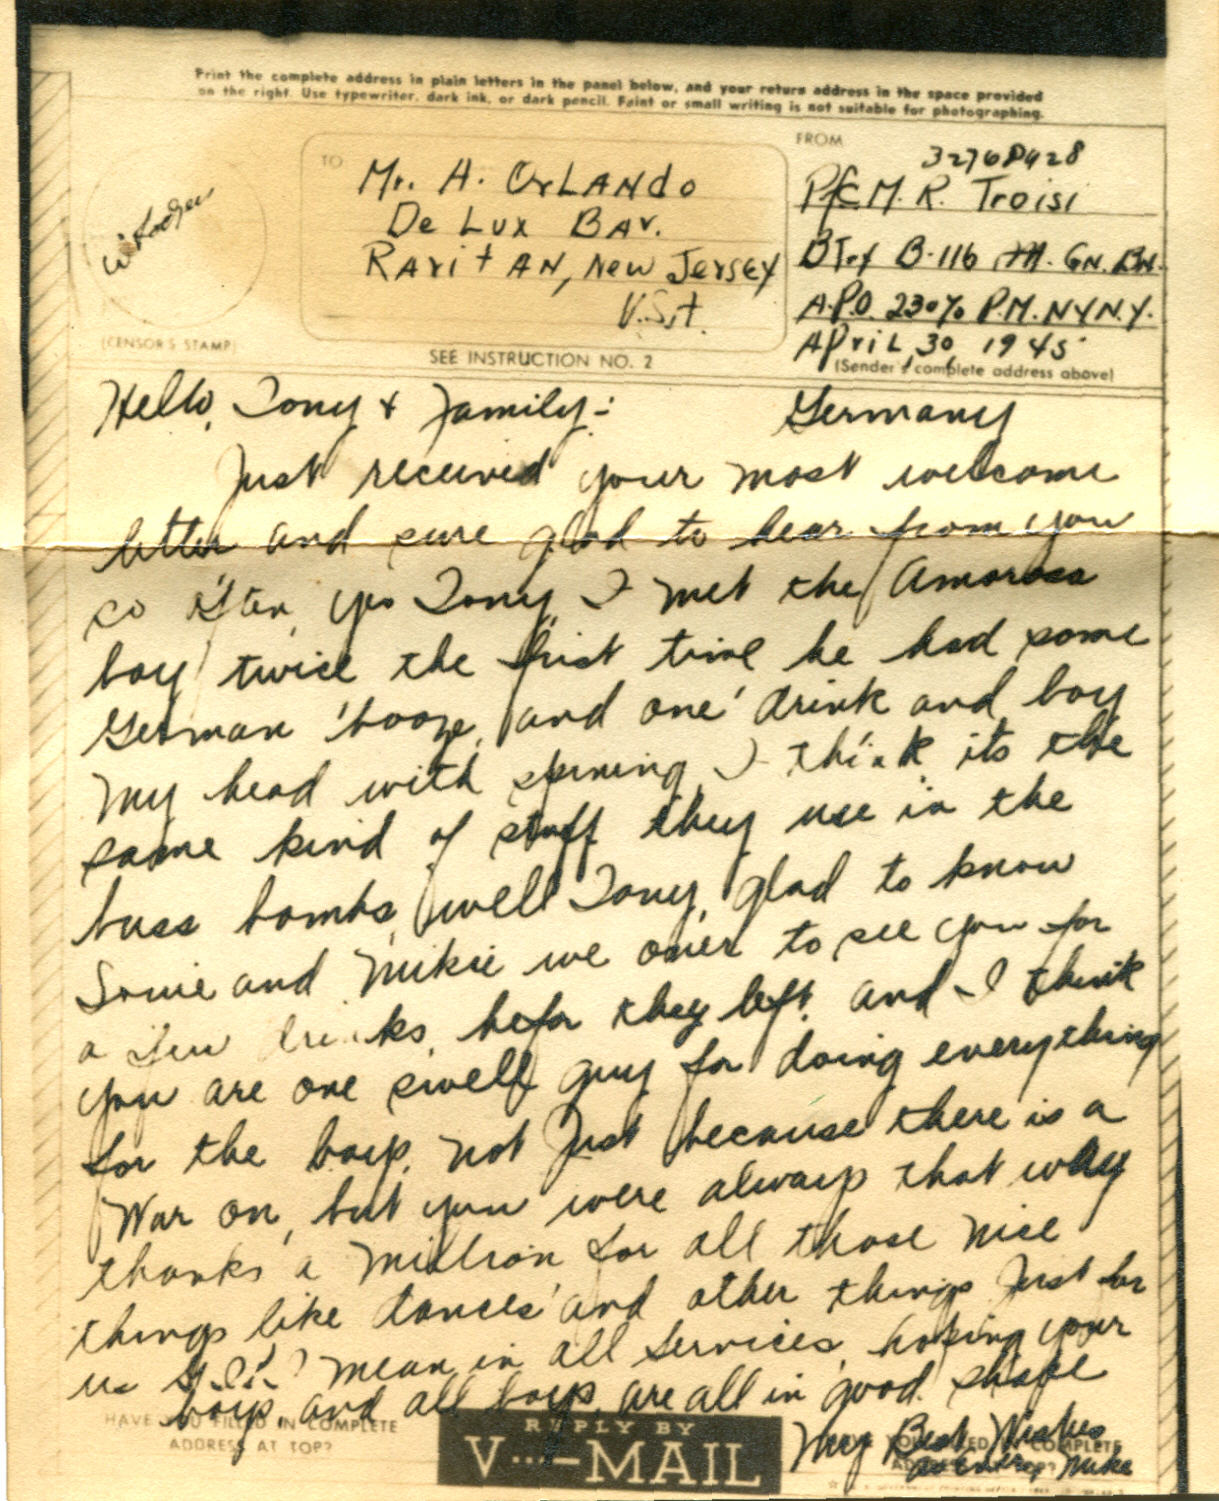 Print the complete address in plain letters in the panel below, and your return address in the space provided
on the right. Use typewriter, dark ink, or dark pencil. Faint or small writing is not suitable for photographing.
TO
Mr. A. OrLANdo
De Lux BAr.
RAritAN, New Jersey
U.S.A.
FROM
Pfc M. R. Troisi
Btry B-116 GN. BN.
A.P.O. 230 % P.M. N.Y. N.Y.
APriL 30 1945
(Sender's complete address above)
(CENSOR'S STAMP)
SEE INSTRUCTION NO. 2
Hello, Tony & Family:
Germany
Just received your most welcome
letter and sure glad to hear from you
so often, yes Tony I met the Amorosa
boy twice the first time he had some
German booze, and one drink and boy
my head with spining I think its the
same kind of stuff they use in the
buss bombs, well Tony, glad to know
and Mikie we over to see you for
a few drinks, befor they left, and I think
you are one swell guy for doing everything
for the boys, not Just because there is a
War on, but you were always that way
thanks a million for all those nice
things like dances and other things Just for
us G.I.! I mean in all services, hoping your
boys, and all boys, are all in good shape
My Best Wishes
Mike
HAVE YOU FILLED IN COMPLETE
ADDRESS AT TOP?
REPLY BY
V···—MAIL
HAVE YOU FILLED IN COMPLETE
ADDRESS AT TOP?